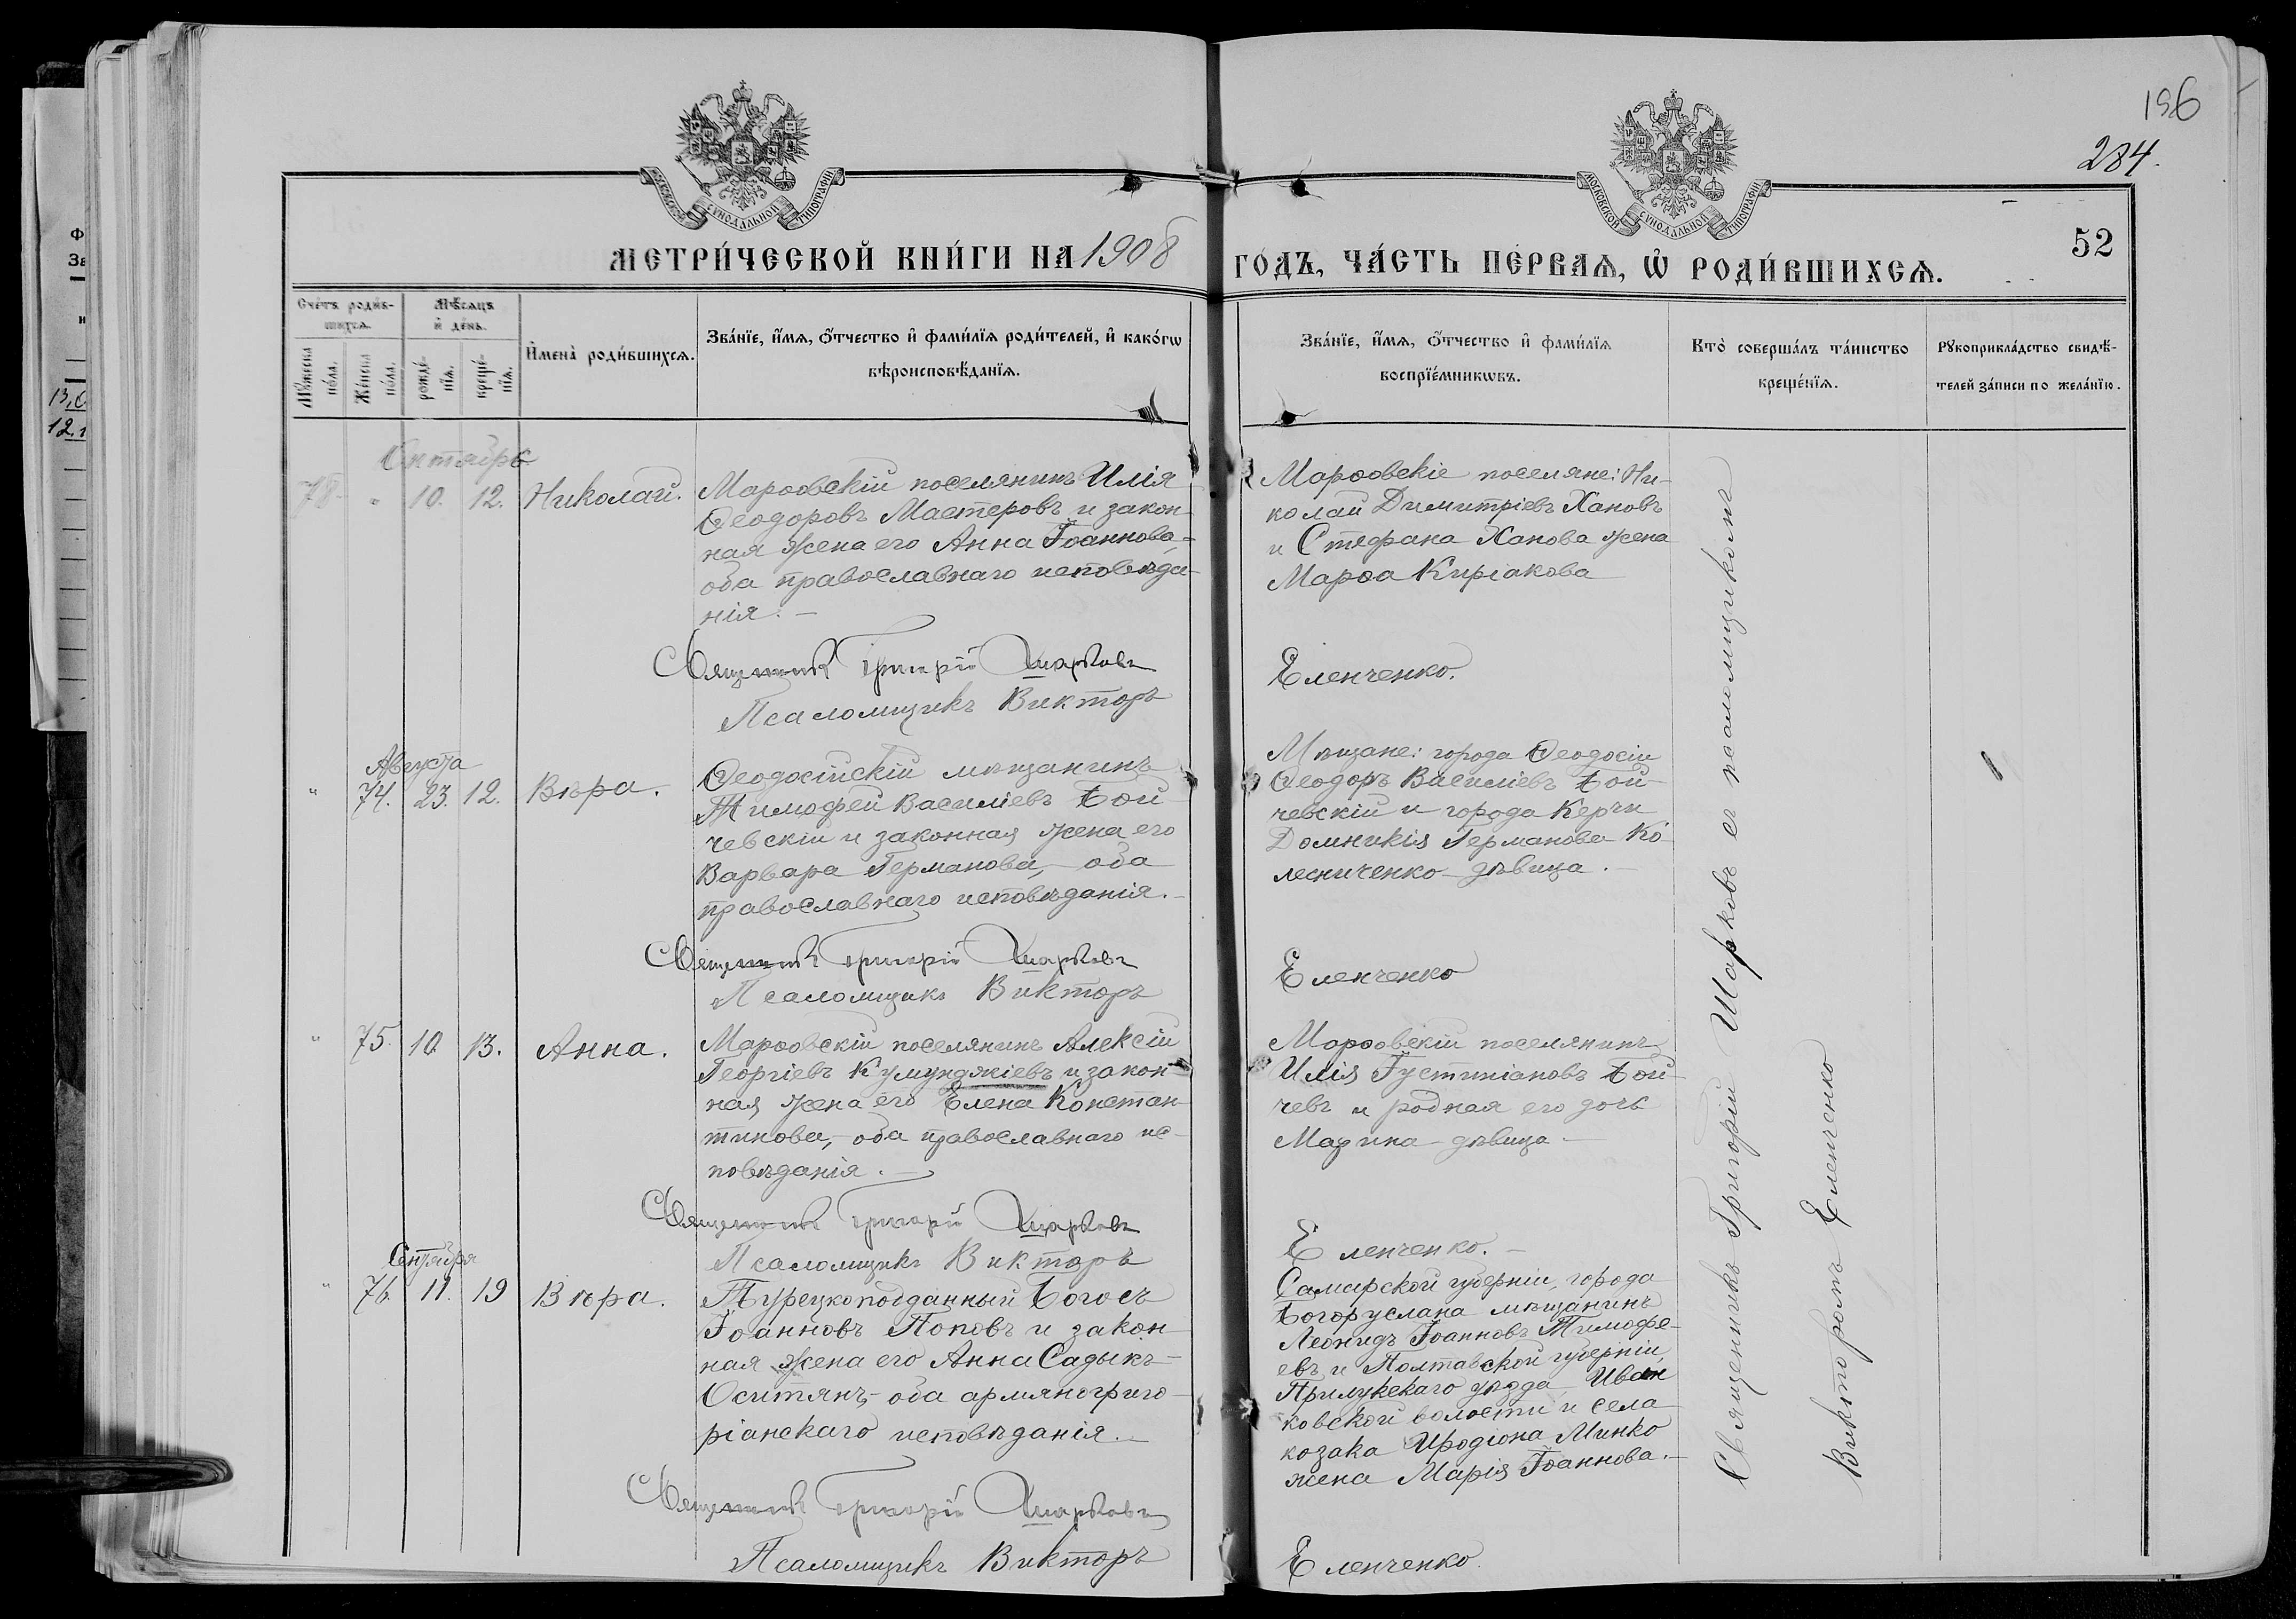 156
284.
МОСКОВСКОЙ СѴНОДАЛЬНОЙ ТИПОГРАФІИ
МОСКОВСКОЙ СѴНОДАЛЬНОЙ ТИПОГРАФІИ
МЕТРИ́ЧЕСКОЙ КНИ́ГИ НА 1908
ГО́ДЪ, ЧА́СТЬ ПЕ́РВАѦ, Ѿ РОДИ́ВШИХСѦ.
52
Сче́тъ роди́в-
шихсѧ.
Мѣ́сѧцъ
и҆ де́нь.
Мꙋ́жеска
по́ла.
Же́нска
по́ла.
рожде́-
нїѧ.
креще́-
нїѧ.
И҆мена̀ роди́вшихсѧ.
Зва́нїе, и҆́мѧ, ѻ҆́тчество и҆ фами́лїѧ роди́телей, и҆ како́гѡ
вѣроисповѣ́данїѧ.
Зва́нїе, и҆́мѧ, ѻ҆́тчество и҆ фами́лїѧ
воспрїе́мникѡвъ.
Кто̀ соверша́лъ та́инство
креще́нїѧ.
Рꙋкоприкла́дство свидѣ́-
телей за́писи по жела́нїю.
Октября
78. " 10. 12. Николай.
Марѳовскій поселянинъ Илія
Ѳеодоровъ Мастеровъ и закон-
ная жена его Анна Іоаннова,-
оба православнаго исповѣда-
нія.-
Священникъ Григорій Шарковъ
Псаломщикъ Викторъ
Марѳовскіе поселяне: Ни-
колай Димитріевъ Хановъ
и Стефана Ханова жена
Марѳа Киріакова
Еленченко.
Августа
" 74. 23. 12. Вѣра.
Ѳеодосійскій мѣщанинъ
Тимофей Василіевъ Бой-
чевскій и законная жена его
Варвара Германова,- оба
православнаго исповѣданія.-
Священникъ Григорій Шарковъ
Псаломщикъ Викторъ
Мѣщане: города Ѳеодосіи
Ѳеодоръ Василіевъ Бой-
чевскій и города Керчи
Домникія Германова Ко-
лесниченко дѣвица.-
Еленченко
" 75. 10. 13. Анна.
Марѳовскій поселянинъ Алексій
Георгіевъ Кумунджіевъ и закон-
ная жена его Елена Констан-
тинова,- оба православнаго ис-
повѣданія.-
Священникъ Григорій Шарковъ
Псаломщикъ Викторъ
Марѳовскій поселянинъ
Илія Іустиніановъ Бой-
чевъ и родная его дочь
Марина дѣвица.-
Еленченко.-
Сентября
" 76. 11. 19 Вѣра.
Турецкоподданный Богосъ
Іоанновъ Поповъ и закон-
ная жена его Анна Садыкъ-
Оситянъ,- оба армяногриго-
ріанскаго исповѣданія.-
Священникъ Григорій Шарковъ
Псаломщикъ Викторъ
Самарской губерніи, города
Богоруслана мѣщанинъ
Леонидъ Іоанновъ Тимофе-
евъ и Полтавской губерніи,
Прилукскаго уѣзда Иван
ковской волости и села
козака Иродіона Минко
жена Марія Іоаннова.-
Еленченко.
Священникъ Григорій Шарковъ съ псаломщикомъ
Викторомъ Еленченко
13,
12.